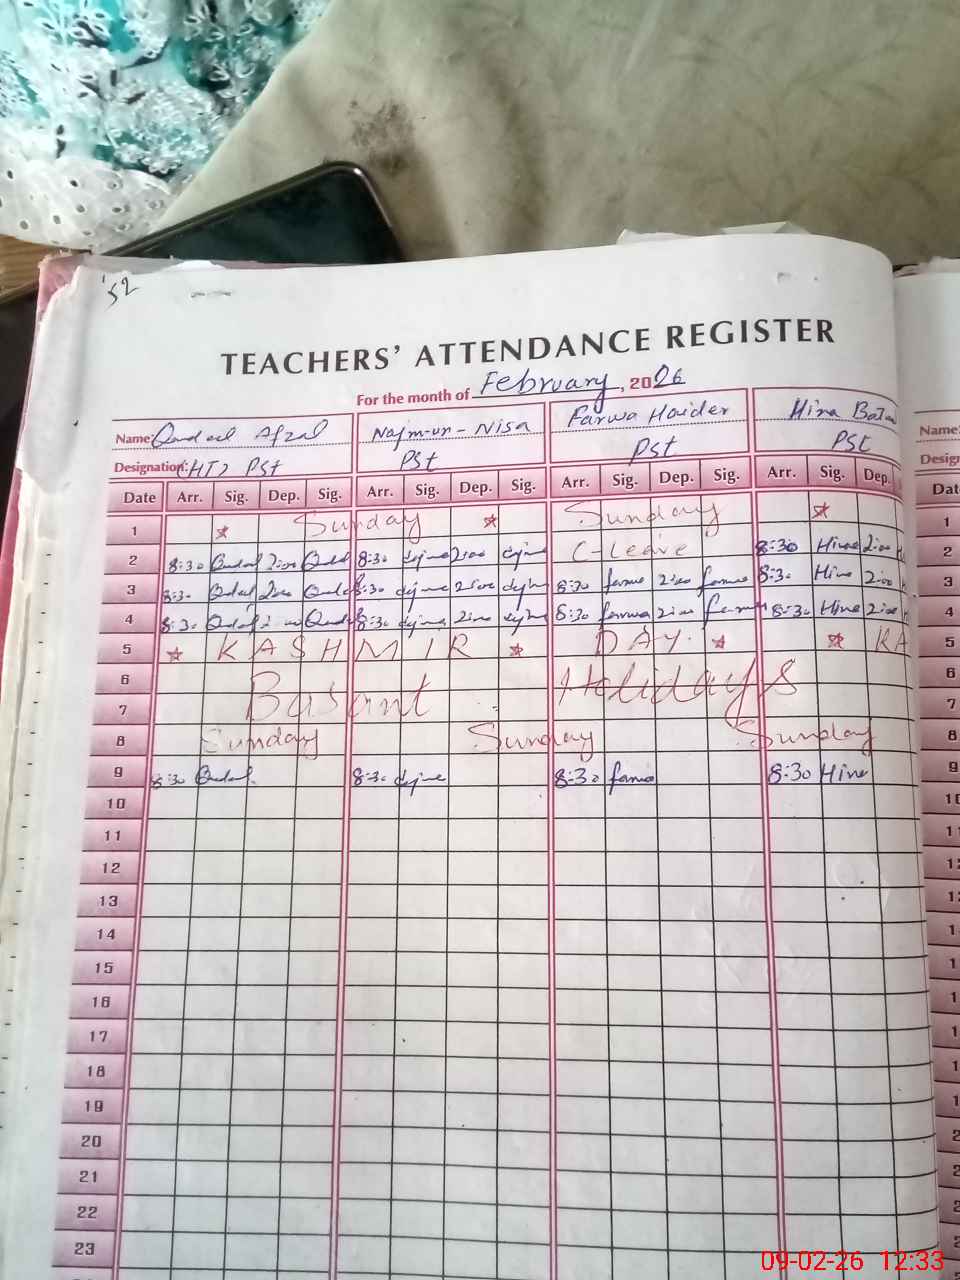 52
TEACHERS' ATTENDANCE REGISTER
For the month of February, 2026
Name: Afzal Najm-un-Nisa Farwa Haider Hina Name:
Designation: HT) PST PST PST PST Desig
Date Arr. Sig. Dep. Sig. Arr. Sig. Dep. Sig. Arr. Sig. Dep. Sig. Arr. Sig. Dep. Dat
1 Sunday Sunday 1
2 8:30 2:00 8:30 2:00 C-Leave 8:30 Hina 2:00 2
3 8:30 8:30 2:00 8:30 2:00 8:30 Hina 2:00 3
4 8:30 8:30 2:00 8:30 farwa 2:00 8:30 Hina 2:00 4
5 KASHMIR DAY. KA 5
6 Basant Holidays 6
7 7
8 Sunday Sunday Sunday 8
9 8:30 8:30 8:30 8:30 Hina 9
10 10
11 11
12 12
13 13
14 1
15 1
16 1
17 1
18 1
19 1
20 2
21 2
22 2
23 2
09-02-26 12:33